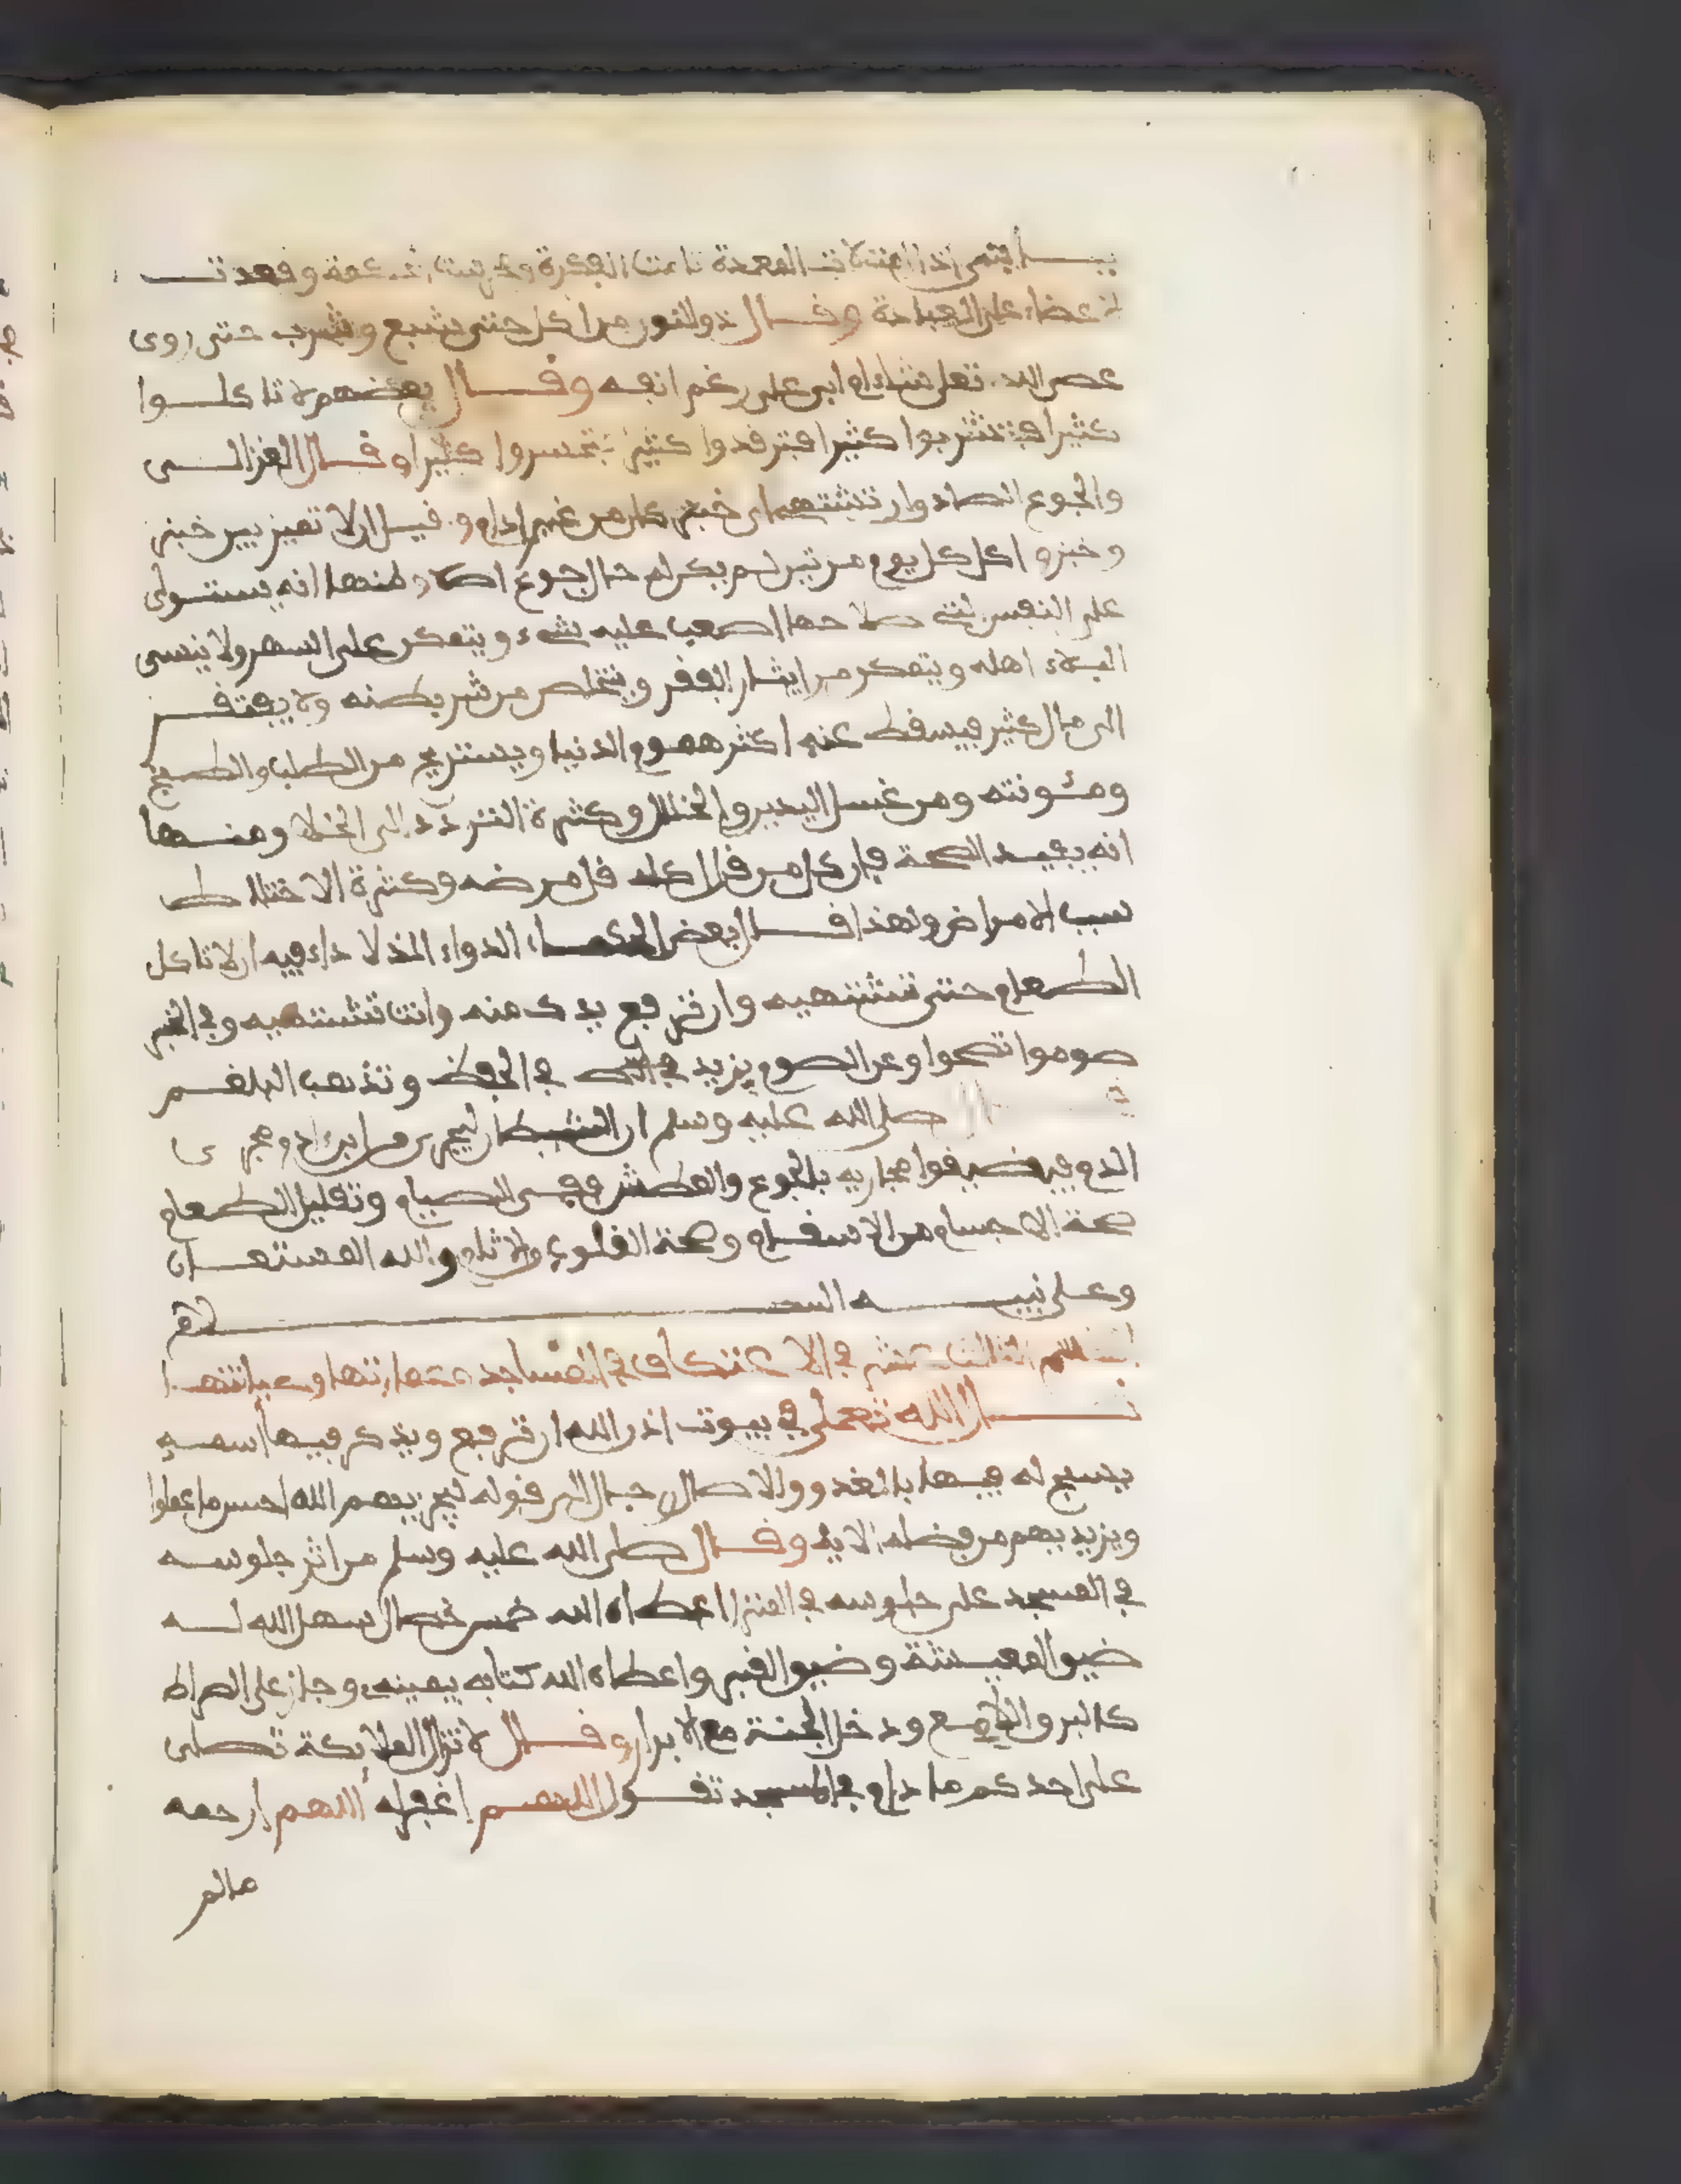 يـــا بني اذا امتلات المعدة نامت الفكرة وخرست الحكمة وقعدت
الاعضاء على العبادة وقـــال ذوالنور من اكل حتى يشبع وشرب حتى روى
عصى الله تعلى شاء ام ابى على رغم انفه وقـــال بعضهم لا تاكلـــوا
كثيرا فتشربوا كثيرا فترقدوا كثيرا فتخسروا كثيرا وقـــال الغزالـــي
والجوع الصادق ان تشتهي اي خبز كان من غير ادام وقيل ان لا تميز بين خبز
وخبز و اكل كل يوم مرتين لم يكن له حال جوع اصلا ومنها انه يستـولى
على النفس التي صلاحها اصعب عليه شيء ويتمكن على السهر ولا ينسى
البلاء اهله ويتمكن من ايثار الفقر ويتخلص من شر بطنه ولا يفتقـــر
الى مال كثير فيسقط عنه اكثر هموم الدنيا ويستريح من الطلب والطبخ
ومئونته ومن غسل اليدين والخلال وكثرة التردد الى الخلا ومنـــها
انه يفيـد الصحة فان كل من قل اكله قل مرضه وكثرة الاختلاط
سبب الامراض ولهذا قـــال بعض الحكمـاء الدواء الذ لا داء فيه ان لا تاكل
الطعام حتى تشتهيه وان ترفع يدك منه وانت تشتهيه وفي الخبر
صوموا تصحوا وعن الصوم يزيد في الحفظ وتذهب البلغـــم
صلى الله عليه وسلم ان الشيطان ليجرى من ابن ادم مجرى
الدم فيه فضيقوا مجاريه بالجوع والعطش ففى الصيام وتقليل الطعام
صحة الاجسام من الاسقـام وصحة القلوب والاثام والله المستعـــان
وعـلى نبيـــــه السـلام
الثالث عشر في الاعتكاف في المساجد وعمارتها وصيانتهـا
قـــال الله تعلى في بيوت اذن الله ان ترفع ويذكر فيها اسمـه
يسبح له فيها بالغدو والاصال رجال الى قوله ليجزيهم الله احسن ما عملوا
ويزيدهم من فضله الاية وقـــال صلى الله عليه وسلم من اثر جلوسـه
في المسجد على جلوسه في المنزل اعطاه الله خمس خصال سهل الله لـــه
ضيق المعيـشة وضيق القبر واعطاه الله كتابه بيمينه وجاز على الصراط
كالبرق اللامـع ودخل الجنة مع الابرار وقـــال لا تزال الملايكة تصلى
على احدكم ما دام في المسجد تقـــول اللهـم اغفر له اللهم ارحمه
مالم